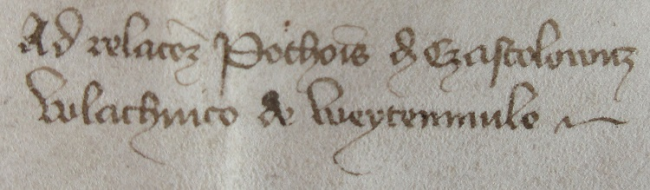 Ad relacoēȝ Pothonis d' Czastolowicz
wlachnico de weytenmule